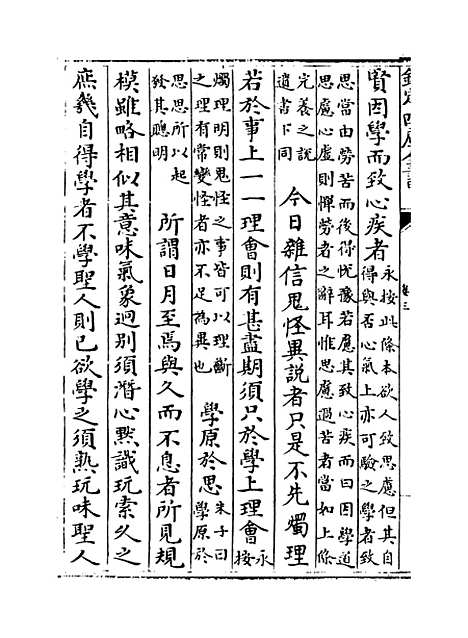 欽定四庫全書
卷三
賢因學而致心疾者
永按此條本欲人致思慮但其自
得與否心氣上亦可驗之學者致
思當由勞苦而後得恱豫若慮其致心疾而曰因學道
思慮心虛則憚勞者之辭耳惟思慮過苦者當如上條
完養之說
遺書下同
今日雜信鬼怪異說者只是不先燭理
若於事上一一理會則有甚盡期須只於學上理會
永
按
燭理明則鬼怪之事皆可以理斷
之理有常變怪者亦不足為異也
學原於思
朱子曰
學原於
思思所以起
發其聰明
所謂日月至焉與久而不息者所見規
模雖略相似其意味氣象迥別須潛心黙識玩索久之
庶幾自得學者不學聖人則已欲學之須熟玩味聖人